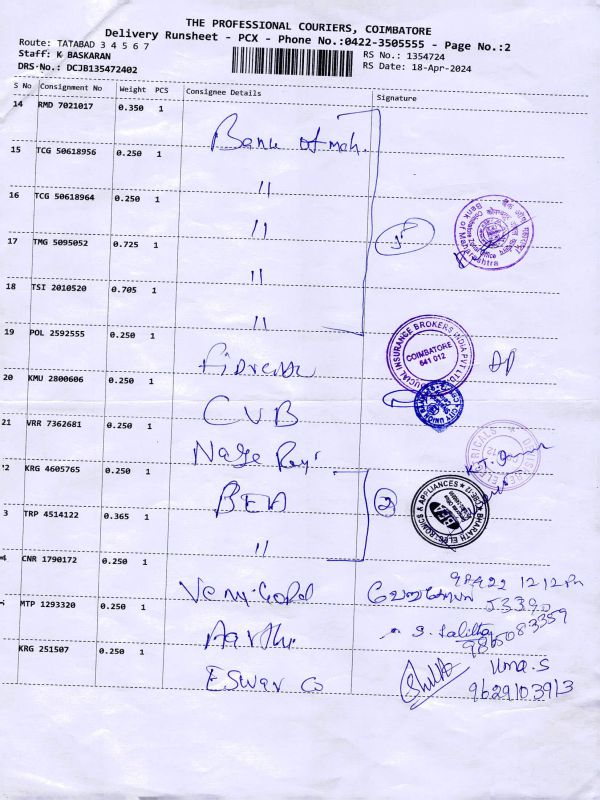 THE PROFESSIONAL COURIERS, COIMBATORE
Delivery Runsheet - PCX - Phone No.:0422-3505555 - Page No.:2
Route: TATABAD 3 4 5 6 7
Staff: K BASKARAN
RS No.: 1354724
DRS No.: DCJB135472402
RS Date: 18-Apr-2024
S No Consignment No Weight PCS Consignee Details Signature
14 RMD 7021017 0.350 1 Bank of mah.
15 TCG 50618956 0.250 1 "
16 TCG 50618964 0.250 1 "
17 TMG 5095052 0.725 1 "
18 TSI 2010520 0.705 1 "
Bank of Maharashtra
19 POL 2592555 0.250 1
INSURANCE BROKERS INDIA PVT LTD
COIMBATORE
641 012
20 KMU 2800606 0.250 1 CUB
CITY UNION
21 VRR 7362681 0.250 1
22 KRG 4605765 0.250 1 BEA 2
BHARATH ELECTRONICS & APPLIANCES
BEA
3 TRP 4514122 0.365 1 "
4 CNR 1790172 0.250 1
98422 1212
MTP 1293320 0.250 1 Aarthi
S. Lalitha
9865083359
KRG 251507 0.250 1 Eswar Co
Uma.S
9629103913